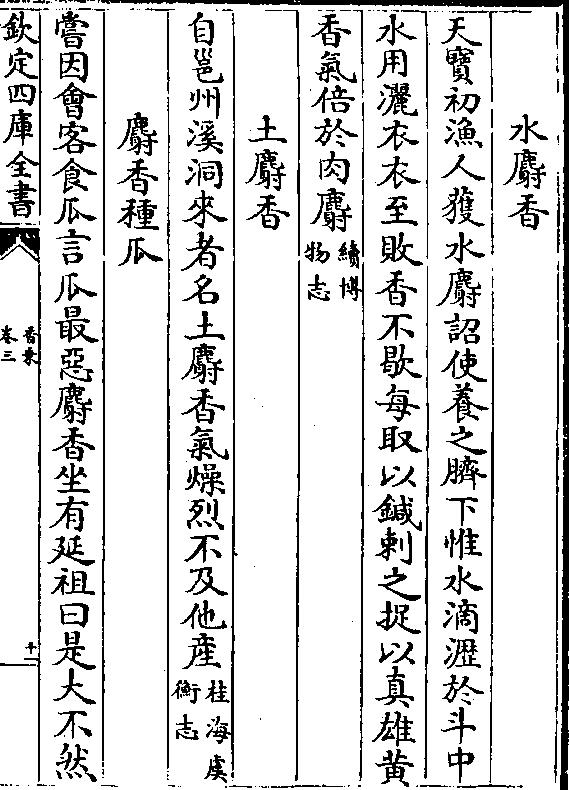 水麝香
天寶初漁人獲水麝詔使養之臍下惟水滴瀝於斗中
水用灑衣衣至敗香不歇每取以鍼刺之捉以真雄黄
香氣倍於肉麝續博物志
土麝香
自邕州溪洞來者名土麝香氣燥烈不及他産桂海虞衡志
麝香種瓜
嘗因會客食瓜言瓜最惡麝香坐有延祖曰是大不然
欽定四庫全書
香乗
卷三
十一